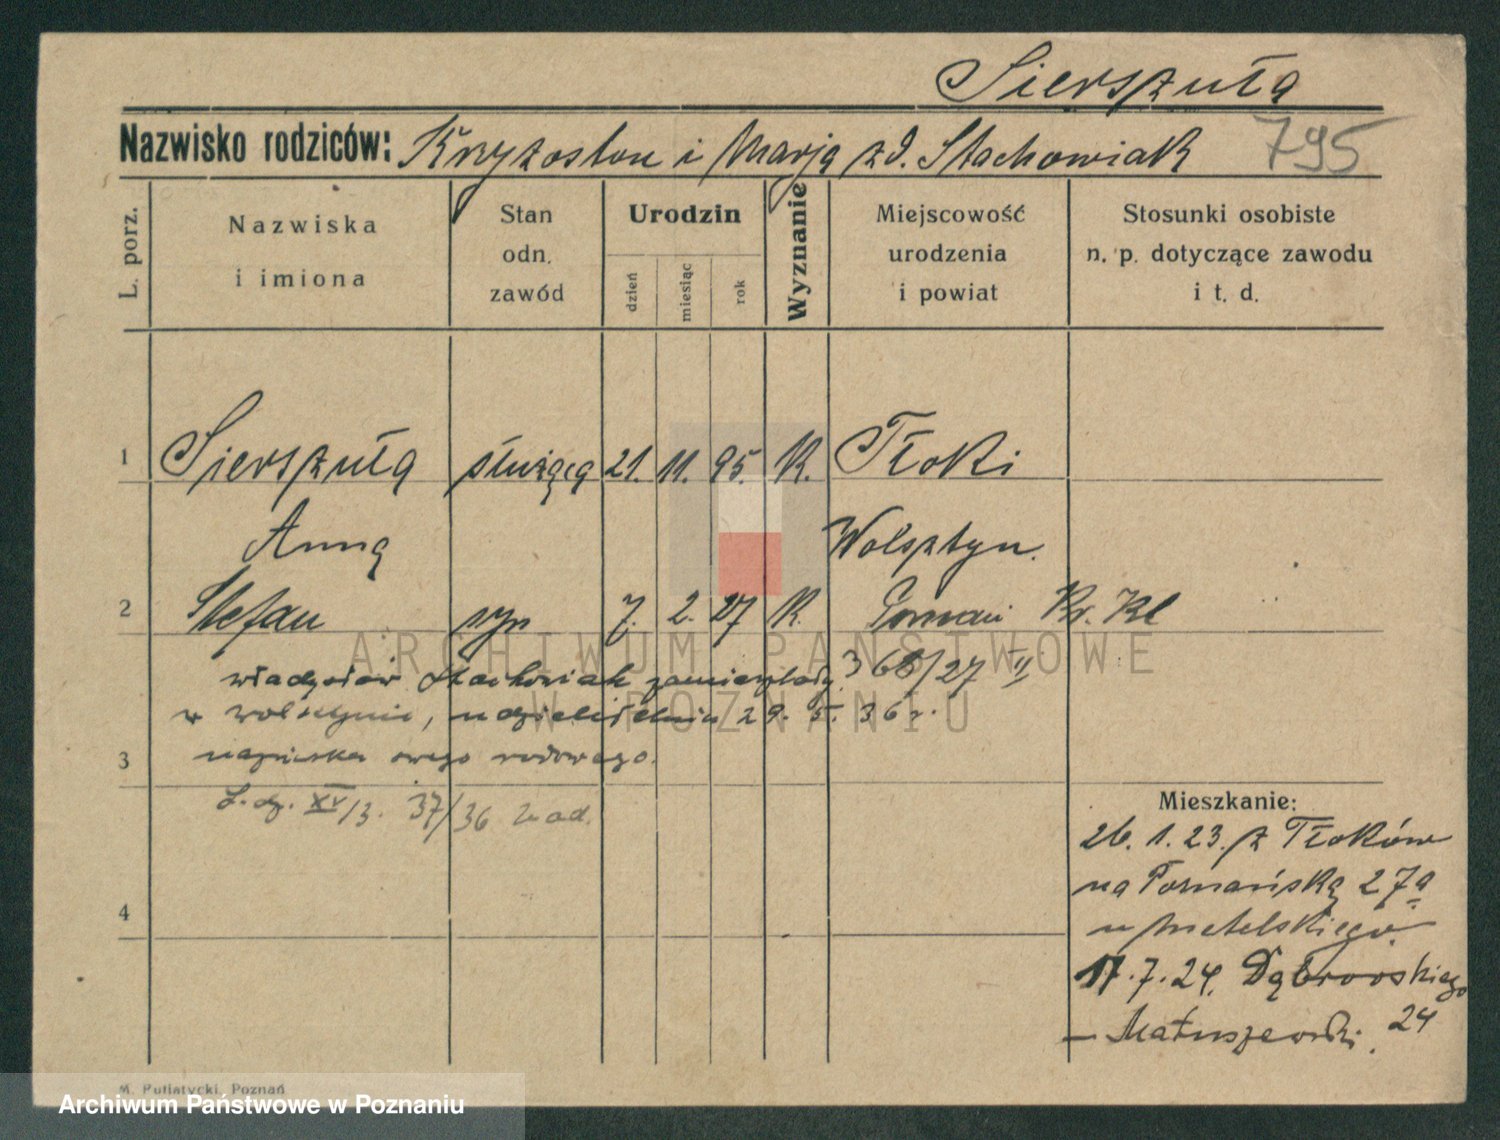 Sierszuła
Nazwisko rodziców: Kryzostom i Marja zd. Stachowiak 795
L. porz.
Nazwiska i imiona
Stan odn. zawód
Urodzin
dzień
miesiąc
rok
Wyznanie
Miejscowość urodzenia i powiat
Stosunki osobiste n. p. dotyczące zawodu i t. d.
1 Sierszuła służąca 21. 11. 95. K. Tłoki
Anna Wolsztyn.
2 Stefan syn 7. 2. 27 K. Poznań Kr. Kl
368/27 II
Władysław Stachowiak zamieszkały
w Wolsztynie, udzielił 29. 5. 36 r.
nazwiska swego rodowego.
3
L. dz. XV/3. 37/36
4
Mieszkanie:
26. 1. 23. z Tłoków
na Poznańską 27a
u Metelskiego.
17. 7. 24. Dąbrowskiego
24
— Matuszewski.
M. Putiatycki, Poznań
ARCHIWUM PAŃSTWOWE
W POZNANIU
Archiwum Państwowe w Poznaniu